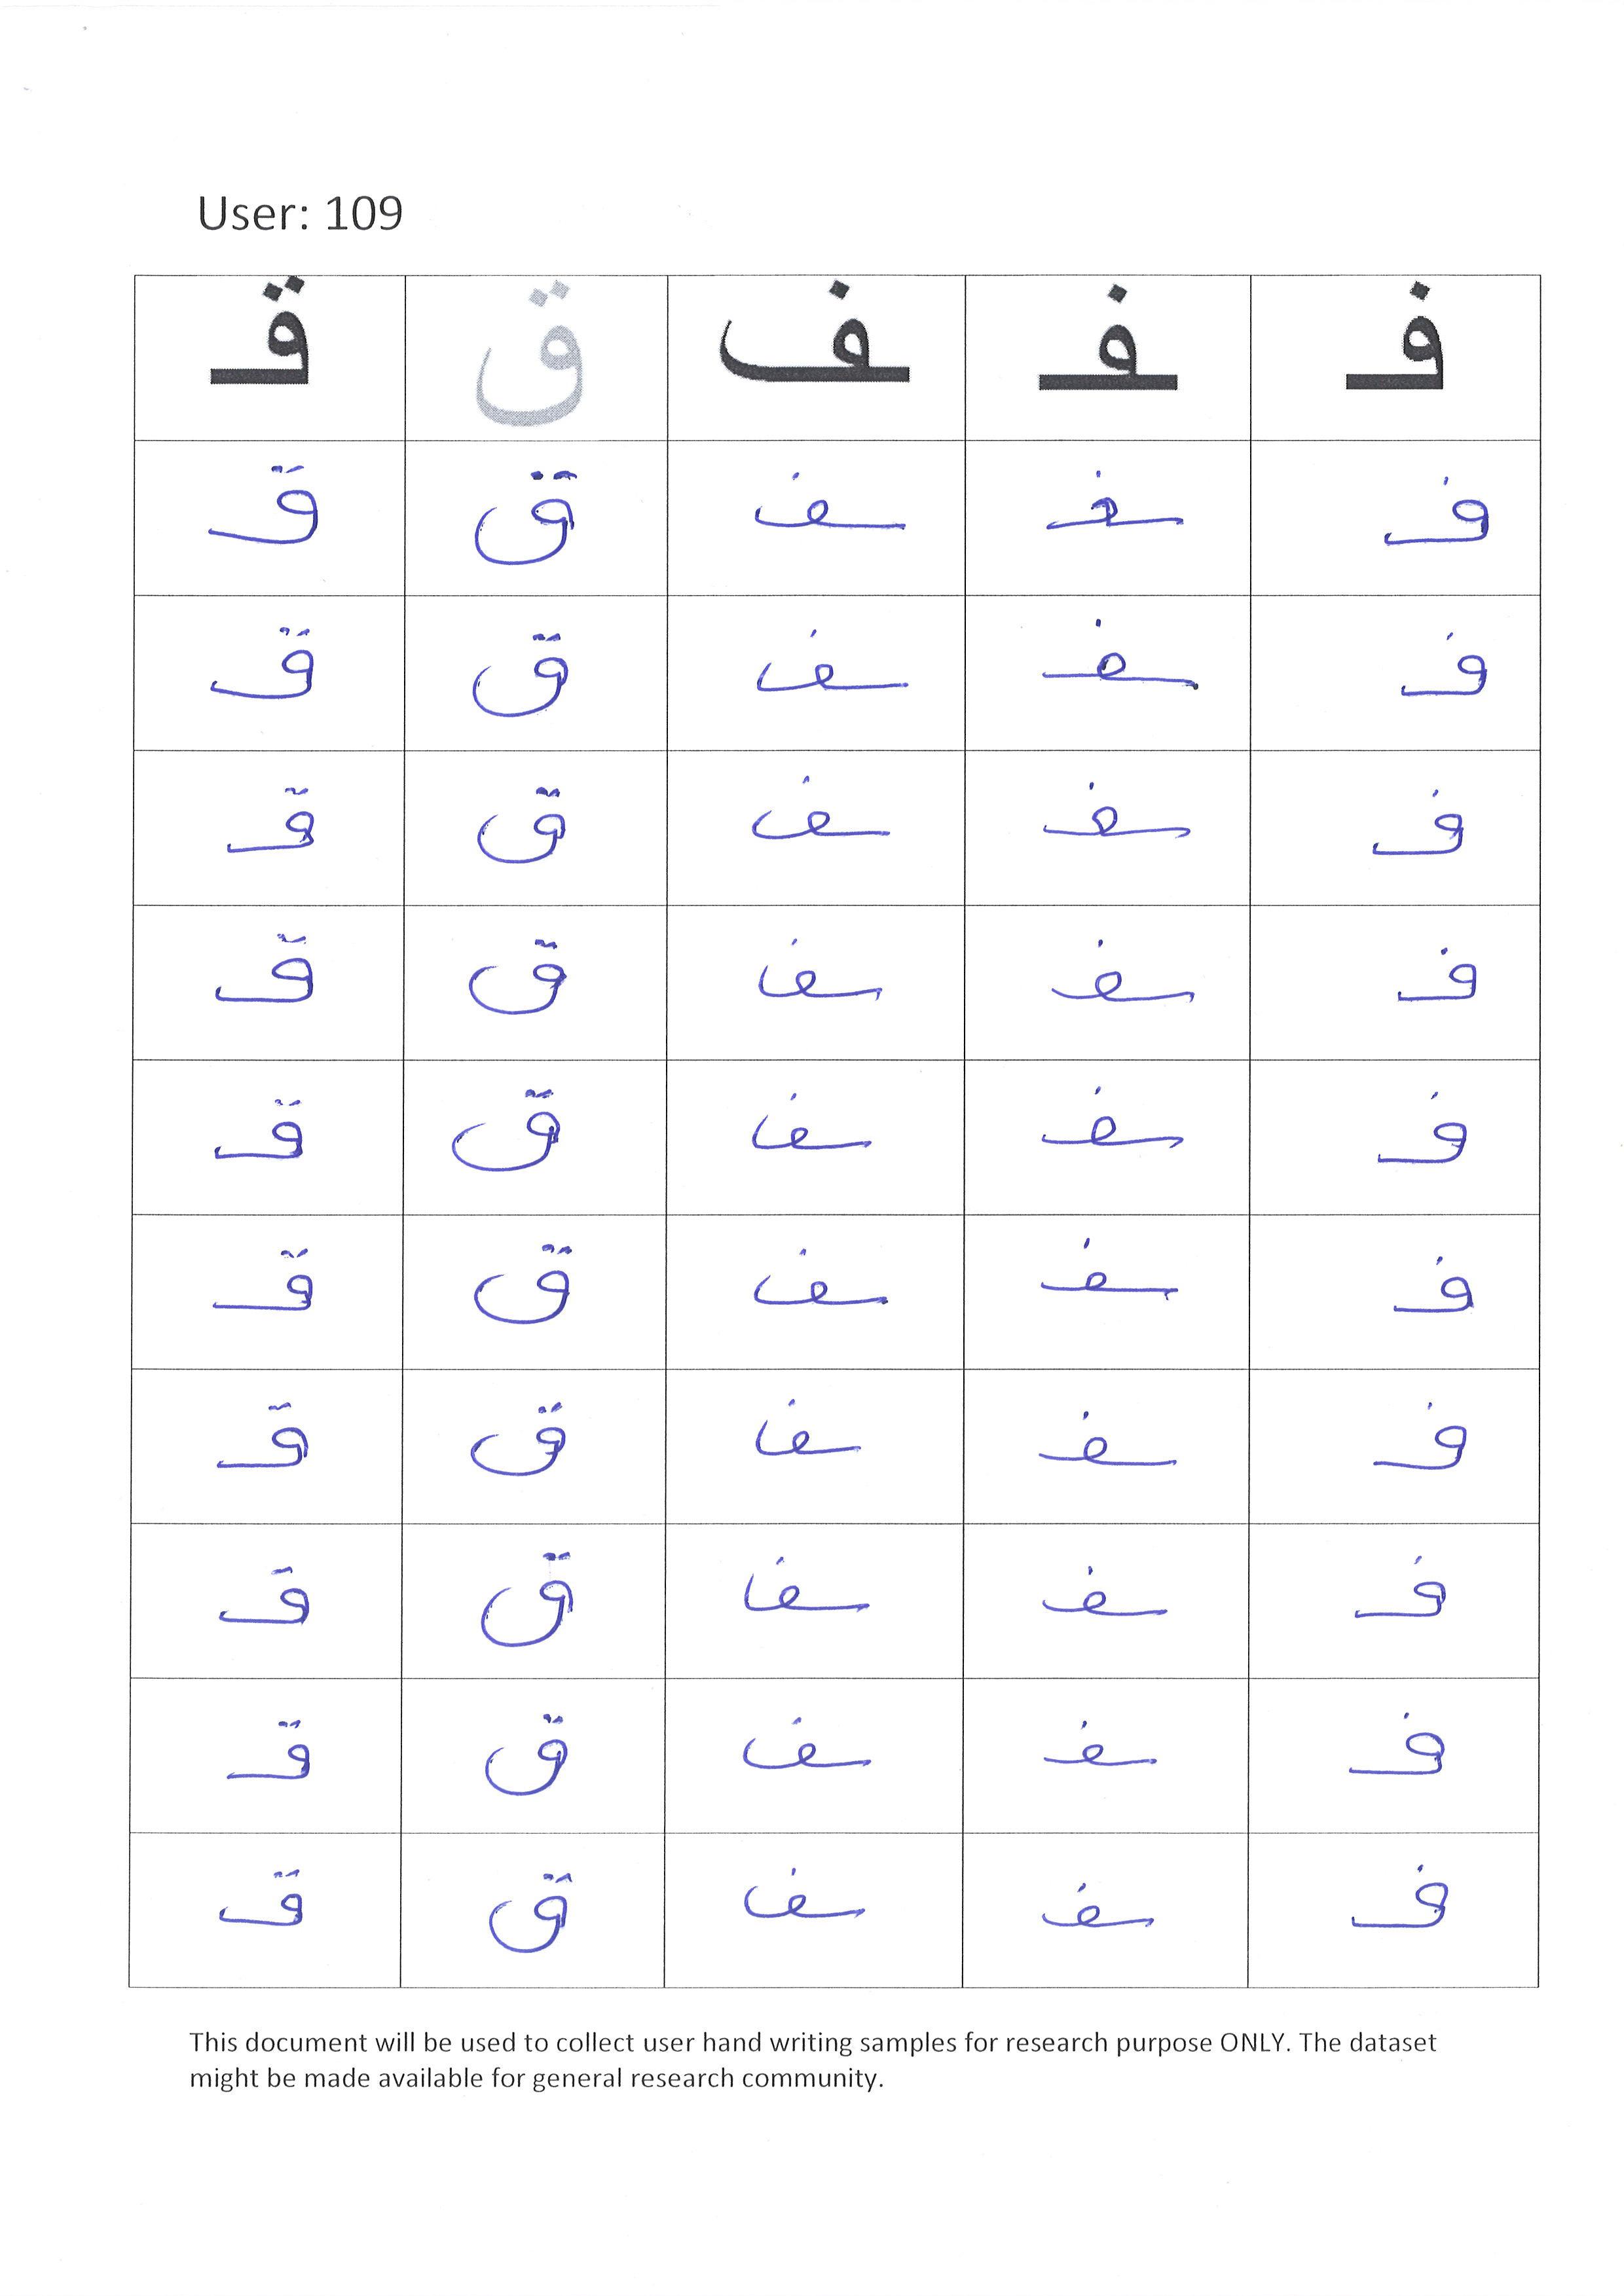 User: 109
فـ ـفـ ـف ق قـ
فـ ـفـ ـف ق قـ
فـ ـفـ ـف ق قـ
فـ ـفـ ـف ق قـ
فـ ـفـ ـف ق قـ
فـ ـفـ ـف ق قـ
فـ ـفـ ـف ق قـ
فـ ـفـ ـف ق قـ
فـ ـفـ ـف ق قـ
فـ ـفـ ـف ق قـ
فـ ـفـ ـف ق قـ
This document will be used to collect user hand writing samples for research purpose ONLY. The dataset
might be made available for general research community.